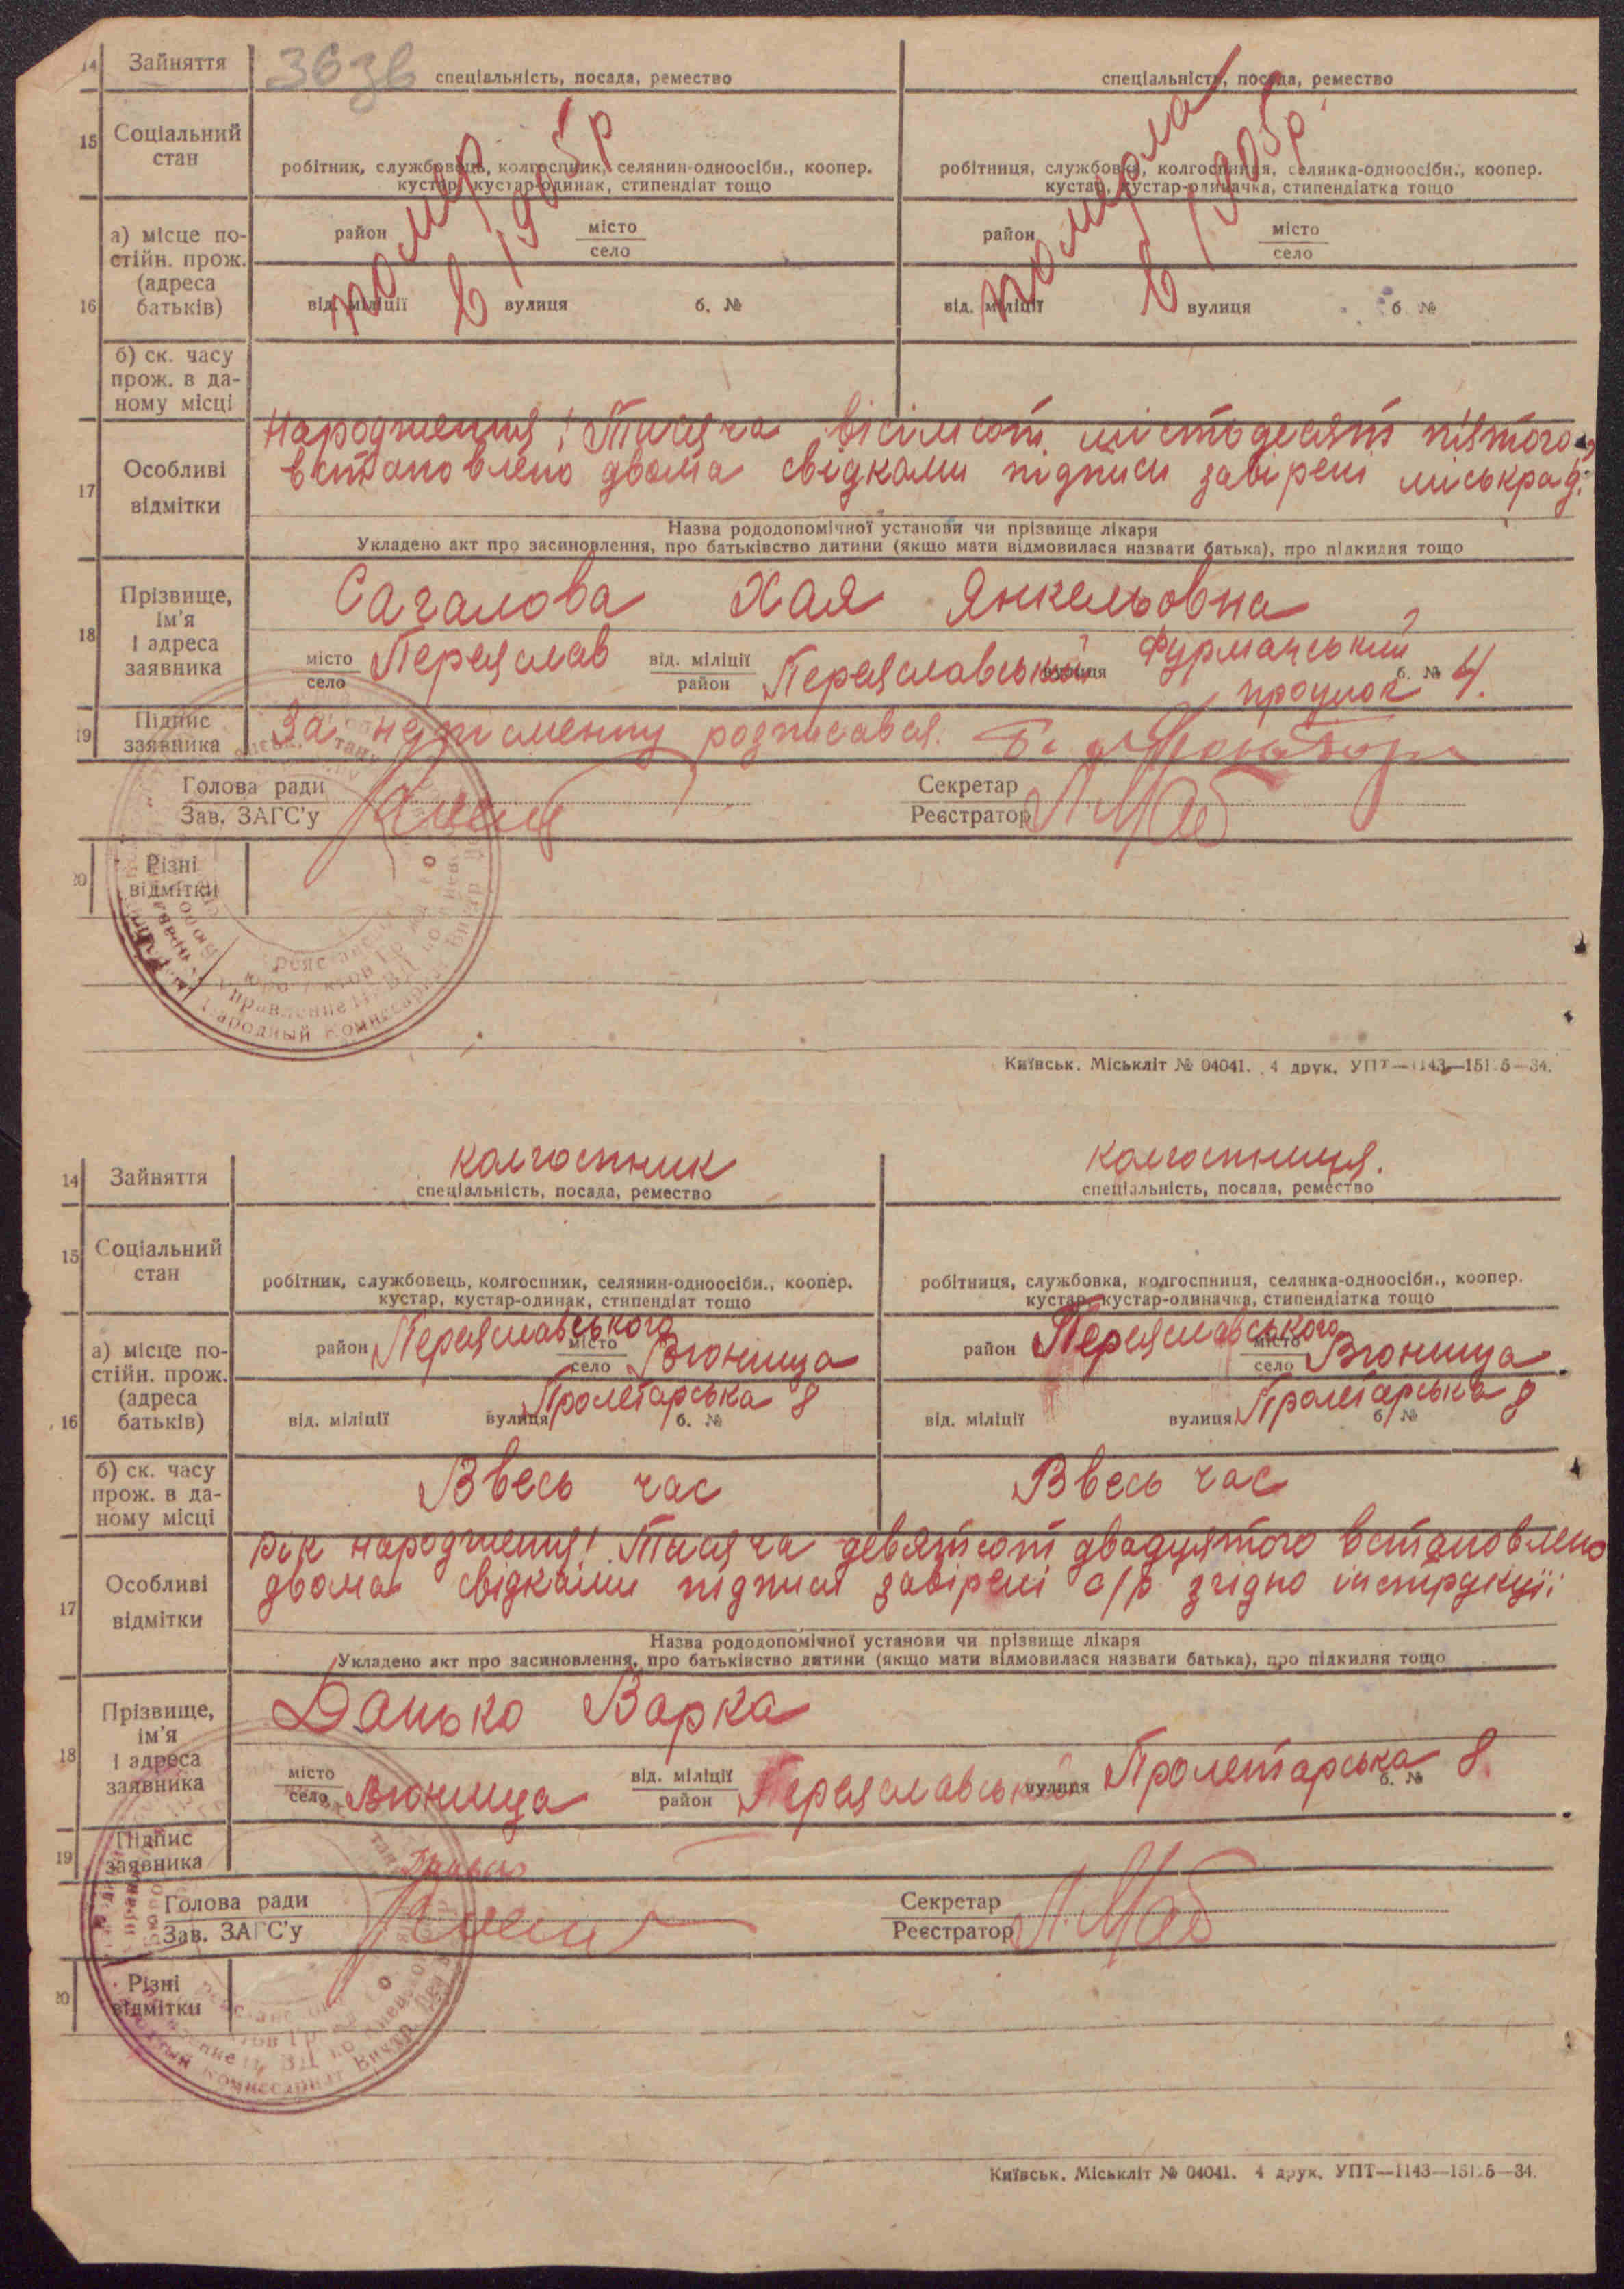 14 Зайняття 363в
спеціальність, посада, ремество спеціальність, посада, ремество
помер в 1905р померла в 1905р.
15 Соціальний стан
робітник, службовець, колгоспник, селянин-одноосібн., коопер. робітниця, службовка, колгоспниця, селянка-одноосібн., коопер.
кустар, кустар-одинак, стипендіат тощо кустар, кустар-одиначка, стипендіатка тощо
16 а) місце постійн. прож. (адреса батьків)
район місто район місто
село село
від. міліції вулиця б. № від. міліції вулиця б №
б) ск. часу
прож. в да-
ному місці
Народження! Тисяча вісімсот шістьдесят п'ятого
17 Особливі відмітки
встановлено двома свідками підписи завірені міськрад.
Назва рододопомічної установи чи прізвище лікаря
Укладено акт про засиновлення, про батьківство дитини (якщо мати відмовилася назвати батька), про підкидня тощо
18 Прізвище, ім'я і адреса заявника
Сагалова Хая Янкельовна
місто Переяслав від. міліції Переяславський вулиця Фурманський
село район провулок б. № 4.
19 Підпис заявника За неписьменну розписався.
Голова ради Секретар
Зав. ЗАГС'у Реєстратор
20 Різні
відмітки
Управление
Народный Комиссариат
Київськ. Міськліт № 04041. 4 друк. УПТ—1143—151.5—34.
колгоспник колгоспниця.
14 Зайняття
спеціальність, посада, ремество спеціальність, посада, ремество
15 Соціальний
стан
робітник, службовець, колгоспник, селянин-одноосібн., коопер. робітниця, службовка, колгоспниця, селянка-одноосібн., коопер.
кустар, кустар-одинак, стипендіат тощо кустар, кустар-одиначка, стипендіатка тощо
16 а) місце постійн. прож. (адреса батьків)
район Переяславського місто район Переяславського місто
село Вюнища село Вюнища
від. міліції вулиця Пролетарська б. № 8 від. міліції вулиця Пролетарська б. № 8
б) ск. часу
прож. в да-
ному місці
Ввесь час Ввесь час
Рік народження! Тисяча девятсот двадцятого встановлено
17 Особливі відмітки
двома свідками підписи завірені с/р згідно інструкції
Назва рододопомічної установи чи прізвище лікаря
Укладено акт про засиновлення, про батьківство дитини (якщо мати відмовилася назвати батька), про підкидня тощо
18 Прізвище, ім'я і адреса заявника
Данько Варка
місто від. міліції
село Вюнища район Переяславський вулиця Пролетарська б. № 8.
19 Підпис
заявника
Голова ради Секретар
Зав. ЗАГС'у Реєстратор
20 Різні
відмітки
Комиссариат Внутр.
Київськ. Міськліт № 04041. 4 друк. УПТ—1143—151.5—34.